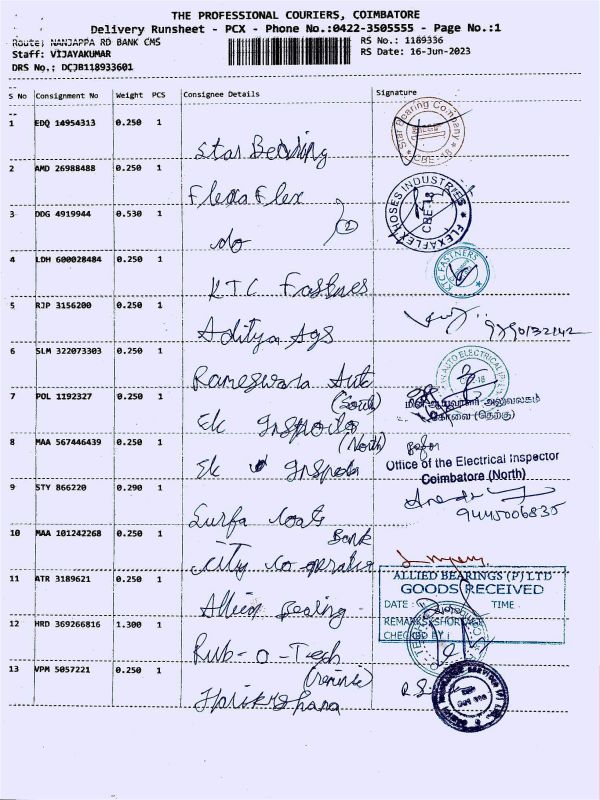 THE PROFESSIONAL COURIERS, COIMBATORE
Delivery Runsheet - PCX - Phone No.:0422-3505555 - Page No.:1
Route: NANJAPPA RD BANK CMS
RS No.: 1189336
Staff: VIJAYAKUMAR
RS Date: 16-Jun-2023
DRS No.: DCJB118933601
S No Consignment No Weight PCS Consignee Details Signature
1 EDQ 14954313 0.250 1
Star Bearing Company
CBE-18
Star Bearing
2 AMD 26988488 0.250 1
FLEXAFLEX HOSES INDUSTRIES
CBE-18
Flexa Flex
3 DDG 4919944 0.530 1
do
2
4 LDH 600028484 0.250 1
KTC FASTNERS
KTC Fastners
5 RJP 3156200 0.250 1
Aditya Ags
9790132142
6 SLM 322073303 0.250 1
AUTO ELECTRICAL
Rameswara Auto
7 POL 1192327 0.250 1
(South)
மின் ஆய்வாளர் அலுவலகம்
கோவை (தெற்கு)
8 MAA 567446439 0.250 1
(North)
Office of the Electrical Inspector
Coimbatore (North)
9 STY 866220 0.290 1
9445006835
Surfa Coats
10 MAA 101242268 0.250 1
Bank
City Co-operative
11 ATR 3189621 0.250 1
ALLIED BEARINGS (P) LTD
GOODS RECEIVED
DATE : TIME :
Allied Bearing
12 HRD 369266816 1.300 1
REMARKS:SHORTAGE
CHECKED BY :
Rub-o-Tech
13 VPM 5057221 0.250 1
Harikrshana